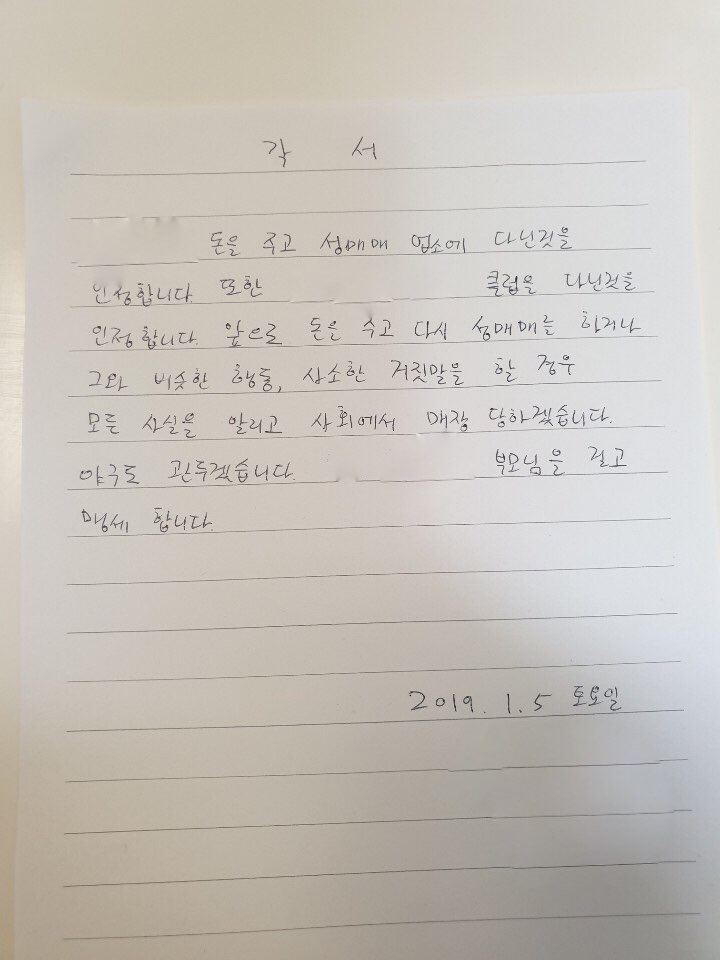 각 서
돈을 주고 성매매 업소에 다닌것을
인정합니다. 또한 클럽을 다닌것을
인정합니다. 앞으로 돈을 주고 다시 성매매를 하거나
그와 비슷한 행동, 사소한 거짓말을 할 경우
모든 사실을 알리고 사회에서 매장 당하겠습니다.
야구도 관두겠습니다. 부모님을 걸고
맹세 합니다.
2019. 1. 5 토요일